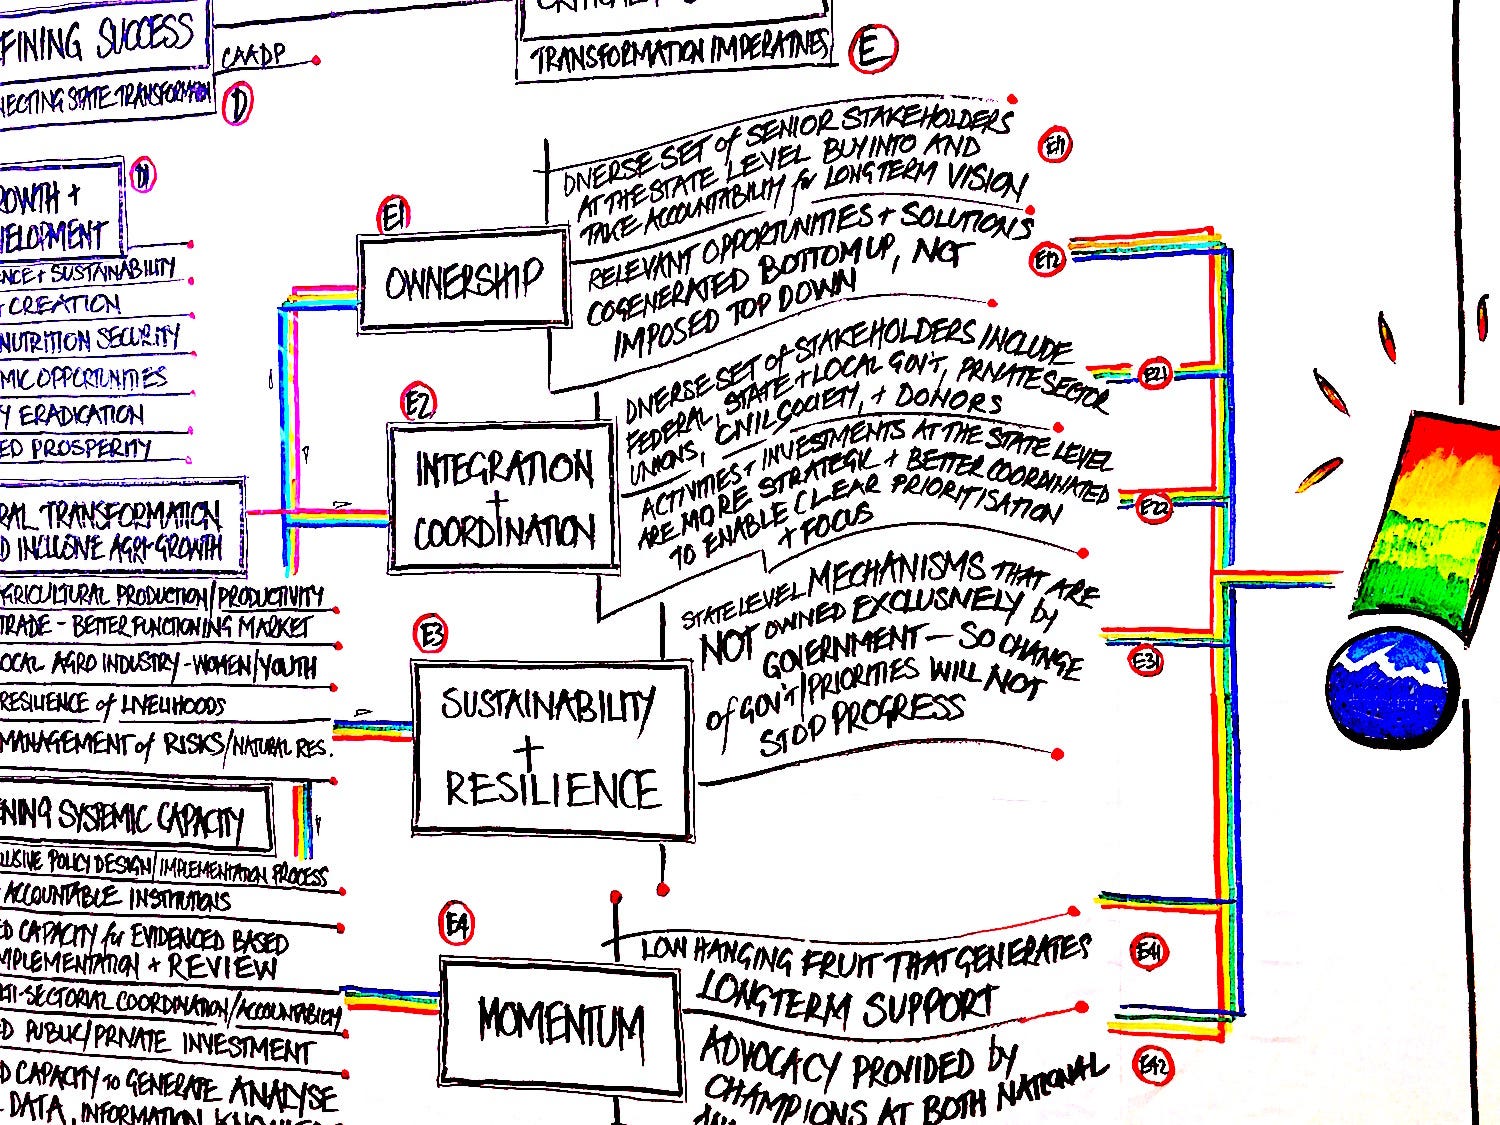 FINING SUCCESS
NECTING STATE TRANSFORMATION
CAADP
D
TRANSFORMATION IMPERATIVES
E
D1
ROWTH +
VELOPMENT
NCE + SUSTAINABILITY
CREATION
NUTRITION SECURITY
MIC OPPORTUNITIES
Y ERADICATION
ED PROSPERITY
RAL TRANSFORMATION
D INCLUSIVE AGRI-GROWTH
AGRICULTURAL PRODUCTION/PRODUCTIVITY
TRADE - BETTER FUNCTIONING MARKET
OCAL AGRO INDUSTRY - WOMEN/YOUTH
RESILIENCE of LIVELIHOODS
MANAGEMENT of RISKS/NATURAL RES.
NING SYSTEMIC CAPACITY
LUSIVE POLICY DESIGN/IMPLEMENTATION PROCESS
ACCOUNTABLE INSTITUTIONS
ED CAPACITY for EVIDENCED BASED
MPLEMENTATION + REVIEW
TI-SECTORIAL COORDINATION/ACCOUNTABILITY
ED PUBLIC/PRIVATE INVESTMENT
D CAPACITY to GENERATE ANALYSE
DATA, INFORMATION
E1
OWNERSHIP
DIVERSE SET of SENIOR STAKEHOLDERS
AT THE STATE LEVEL BUY INTO AND
TAKE ACCOUNTABILITY for LONGTERM VISION
E11
RELEVANT OPPORTUNITIES + SOLUTIONS
COGENERATED BOTTOM UP, NOT
IMPOSED TOP DOWN
E12
E2
INTEGRATION
+
COORDINATION
DIVERSE SET of STAKEHOLDERS INCLUDE
FEDERAL, STATE + LOCAL GOV'T, PRIVATE SECTOR
UNIONS, CIVIL SOCIETY, + DONORS
E21
ACTIVITIES + INVESTMENTS AT THE STATE LEVEL
ARE MORE STRATEGIC + BETTER COORDINATED
TO ENABLE CLEAR PRIORITISATION
+ FOCUS
E22
E3
SUSTAINABILITY
+
RESILIENCE
STATE LEVEL MECHANISMS THAT ARE
NOT OWNED EXCLUSIVELY by
GOVERNMENT - SO CHANGE
of GOV'T/PRIORITIES WILL NOT
STOP PROGRESS
E31
E4
MOMENTUM
LOW HANGING FRUIT THAT GENERATES
LONGTERM SUPPORT
E41
ADVOCACY PROVIDED by
CHAMPIONS AT BOTH NATIONAL
E42